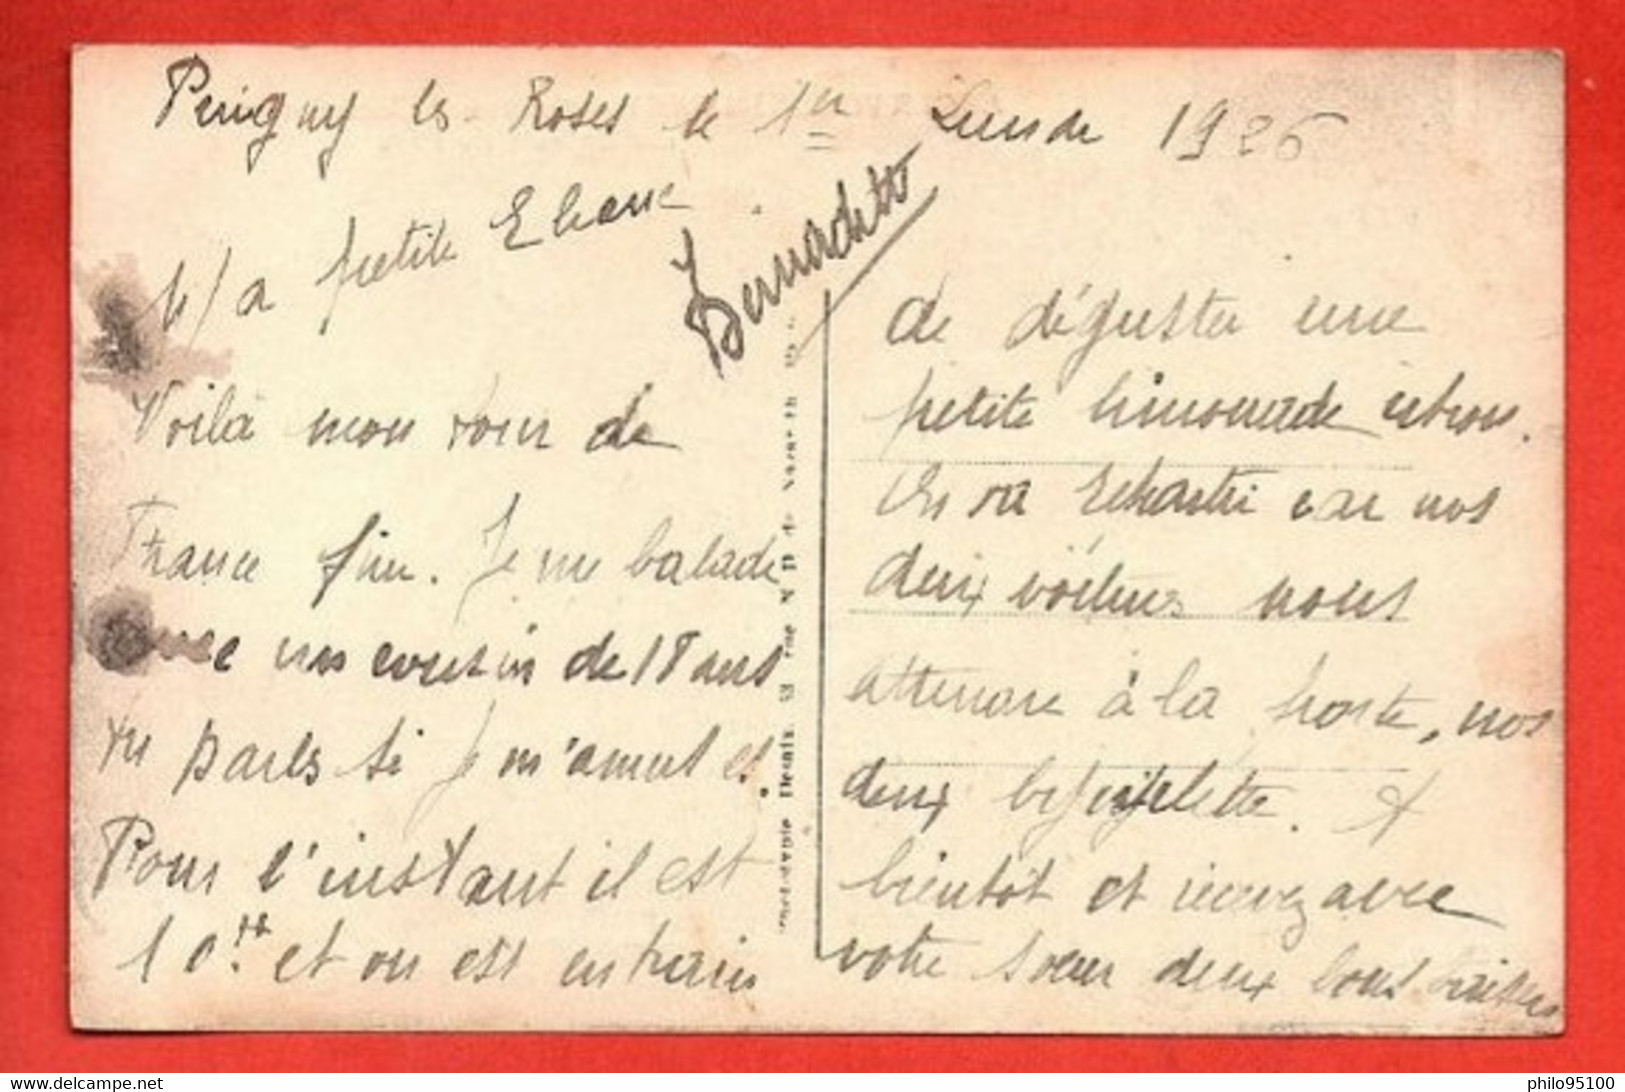 Perigny les Roses le 1er Lundi 1926
Ma petite Eliane
Bernadette
Voilà mon tour de
France fini. Je me balade
avec un cousin de 18 ans
tu parles si je m'amuse
Pour l'instant il est
10h et on est entrain
de déguster une
petite limonade citron.
On va repartir car nos
deux voitures nous
attendre à la porte, nos
deux
bientôt et recevez avec
votre sœur deux bons baisers
philo95100